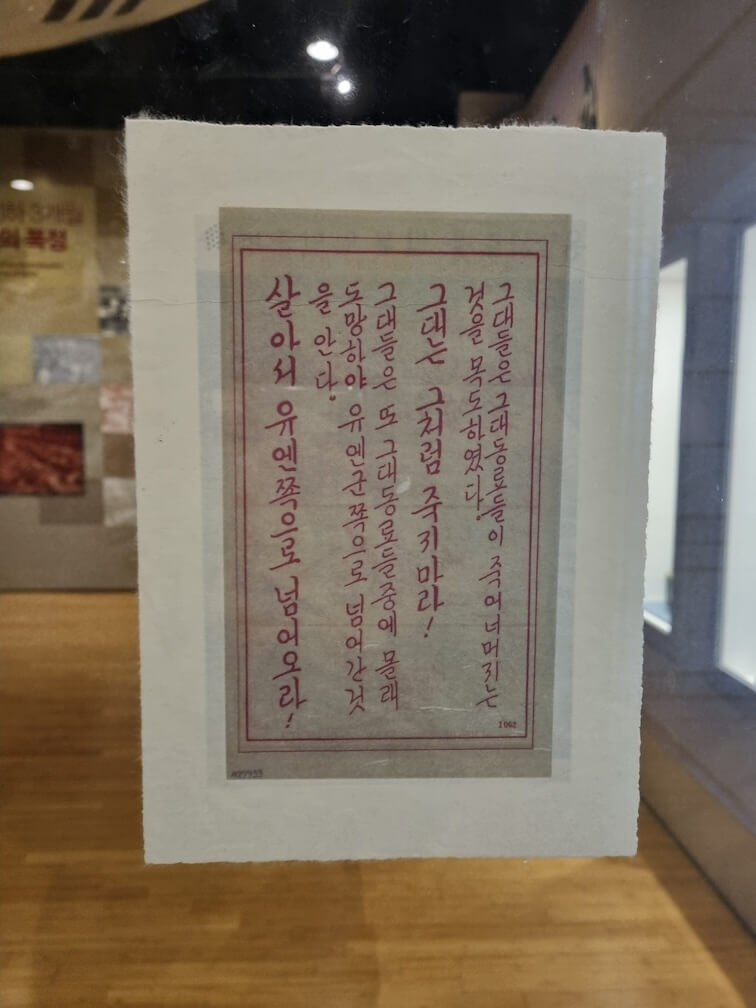 그대들은 그대동료들이 죽어너머지는
것을 목도하였다.
그대는 그처럼 죽지마라!
그대들은 또 그대동료들중에 몰래
도망하야 유엔군쪽으로 넘어간것
을 안다.
살아서 유엔쪽으로 넘어오라!
1062
3개월